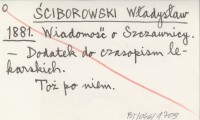 o
ŚCIBOROWSKI Władysław
1881. Wiadomość o Szczawnicy.
— Dodatek do czasopism le-
karskich.
Toż po niem.